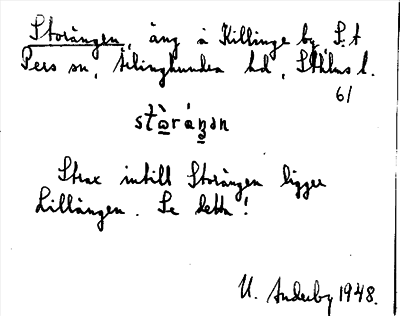 Storängen, äng å Killinge by, S:t
Pers sn, Ärlinghundra hd, Sthlms l.
61
stὼráŋən
Strax intill Storängen ligger
Lillängen. Se detta!
U. Anderby 1948.